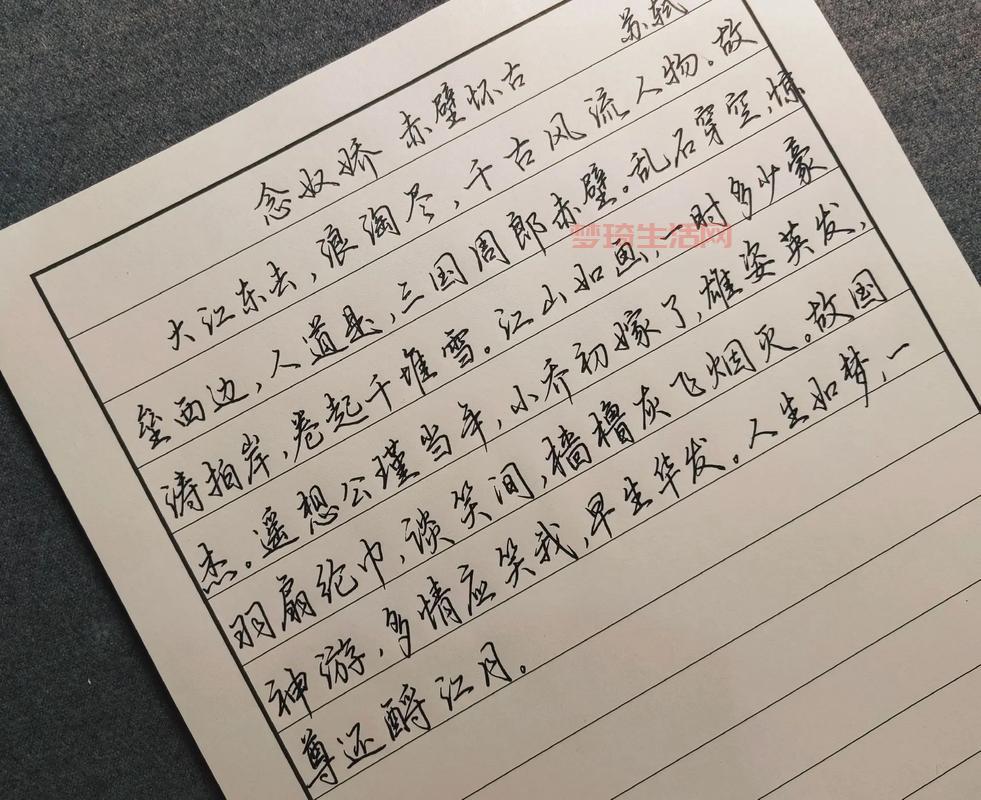 念奴娇 赤壁怀古 苏轼
大江东去，浪淘尽，千古风流人物。故
垒西边，人道是，三国周郎赤壁。乱石穿空，惊
涛拍岸，卷起千堆雪。江山如画，一时多少豪
杰。遥想公瑾当年，小乔初嫁了，雄姿英发，
羽扇纶巾，谈笑间，樯橹灰飞烟灭。故国
神游，多情应笑我，早生华发。人生如梦，一
尊还酹江月。
梦琦生活网